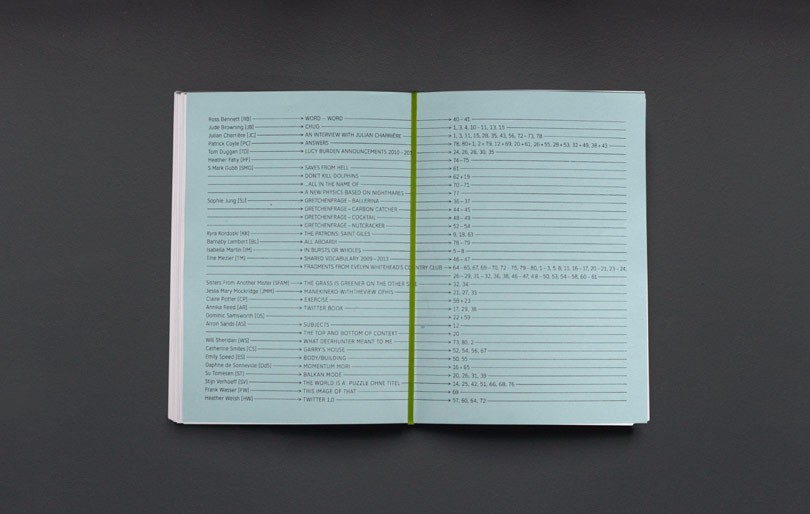 Ross Bennett [RB] WORD - WORD 40 - 41
Jude Browning [JB] CHUG 1, 3, 4, 10 - 11, 13, 15
Julian Charrière [JC] AN INTERVIEW WITH JULIAN CHARRIÈRE 1, 3, 11, 15, 28, 35, 43, 56, 72 - 73, 78
Patrick Coyle [PC] ANSWERS
Tom Duggan [TD] LUCY BURDEN ANNOUNCEMENTS 2010 - 24, 26, 28, 30, 35
Heather Fahy [HF] 74 - 75
S Mark Gubb [SMG] SAVES FROM HELL 61
DON'T KILL DOLPHINS 62 + 19
...ALL IN THE NAME OF 70 - 71
A NEW PHYSICS BASED ON NIGHTMARES 77
Sophie Jung [SJ] GRETCHENFRAGE - BALLERINA 36 - 37
GRETCHENFRAGE - CARBON CATCHER 44 - 45
GRETCHENFRAGE - COCKTAIL 48 - 49
GRETCHENFRAGE - NUTCRACKER 52 - 54
Kyra Kordoski [KK] THE PATRONS SAINT GILES 9, 18, 63
Barnaby Lambert [BL] ALL ABOARD! 78 - 79
Isabella Martin [IM] IN BURSTS OR WHOLES 5 - 8
Tine Melzer [TM] SHARED VOCABULARY 2009 - 2013 46 - 47
FRAGMENTS FROM EVELYN WHITEHEAD'S COUNTRY CLUB 64 - 65, 67, 69 - 70, 72 - 75, 79 - 80, 1 - 3, 5, 8, 11, 16 - 17, 20 - 21, 23 - 24,
26 - 29, 31 - 32, 36, 38, 46 - 47, 48 - 50, 53, 54 - 58, 60 - 61
Sisters From Another Mister [SFAM] THE GRASS IS GREENER ON THE OTHER 32, 34
Jesse Mary Mockridge [JMM] MANEKINEKO 21, 27, 33
Claire Potter [CP] EXERCISE 58 + 23
Annike Reed [AR] TWITTER BOOK 17, 29, 38
Dominic Samsworth [DS] 22 + 59
Arron Sands [AS] SUBJECTS 12
THE TOP AND BOTTOM OF CONTEXT 20
Will Sheridan [WS] WHAT DEERHUNTER MEANT TO ME 73, 80, 2
Catherine Smiles [CS] GARRY'S HOUSE 52, 54, 56, 67
Emily Speed [ES] BODY/BUILDING 50, 55
Daphne de Sonneville [DdS] MOMENTUM MORI 16 + 65
Su Tomesen [ST] BALKAN MODE 20, 26, 31, 39
Stijn Verhoeff [SV] THE WORLD IS A PUZZLE OHNE TITEL 14, 25, 42, 51, 66, 68, 76
Frank Wasser [FW] THIS IMAGE OF THAT 69
Heather Welsh [HW] TWITTER 1.0 57, 60, 64, 72